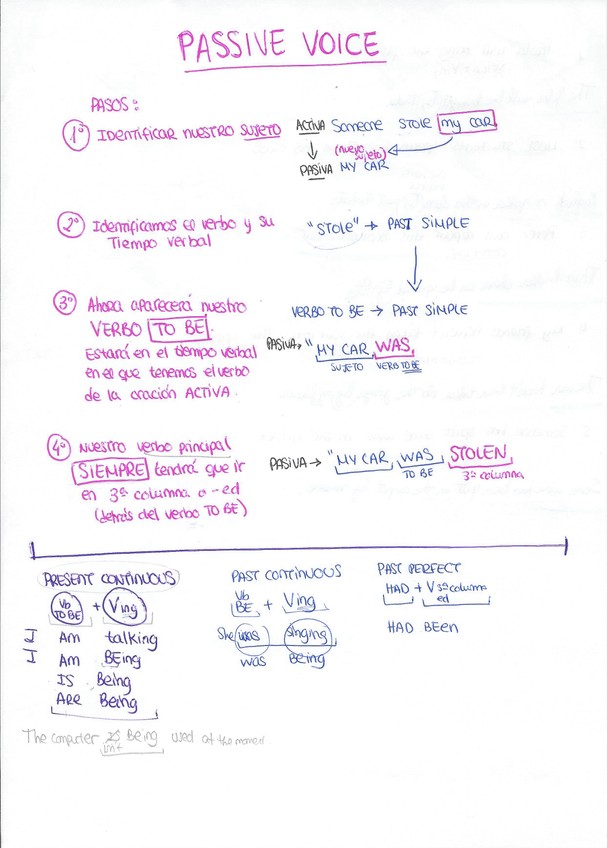 PASSIVE VOICE
PASOS:
1º Identificar nuestro sujeto
ACTIVA Someone STOLE my car
(nuevo sujeto)
PASIVA MY CAR
2º Identificamos el verbo y su
Tiempo verbal
"STOLE" → PAST SIMPLE
3º Ahora aparecerá nuestro
VERBO TO BE.
Estará en el tiempo verbal
en el que tenemos el verbo
de la oración ACTIVA.
VERBO TO BE → PAST SIMPLE
PASIVA → "MY CAR WAS
SUJETO VERBO TO BE
4º Nuestro verbo principal
SIEMPRE tendrá que ir
en 3ª columna o -ed
(detrás del verbo TO BE)
PASIVA → "MY CAR WAS STOLEN
TO BE 3ª columna
PRESENT CONTINUOUS
Vb TO BE + Ving
I Am talking
I Am BEing
IS Being
ARE Being
The computer is Being used at the moment.
isn't
PAST CONTINUOUS
Vb BE + Ving
She was singing
was Being
PAST PERFECT
HAD + V 3ª columna
ed
HAD BEEN